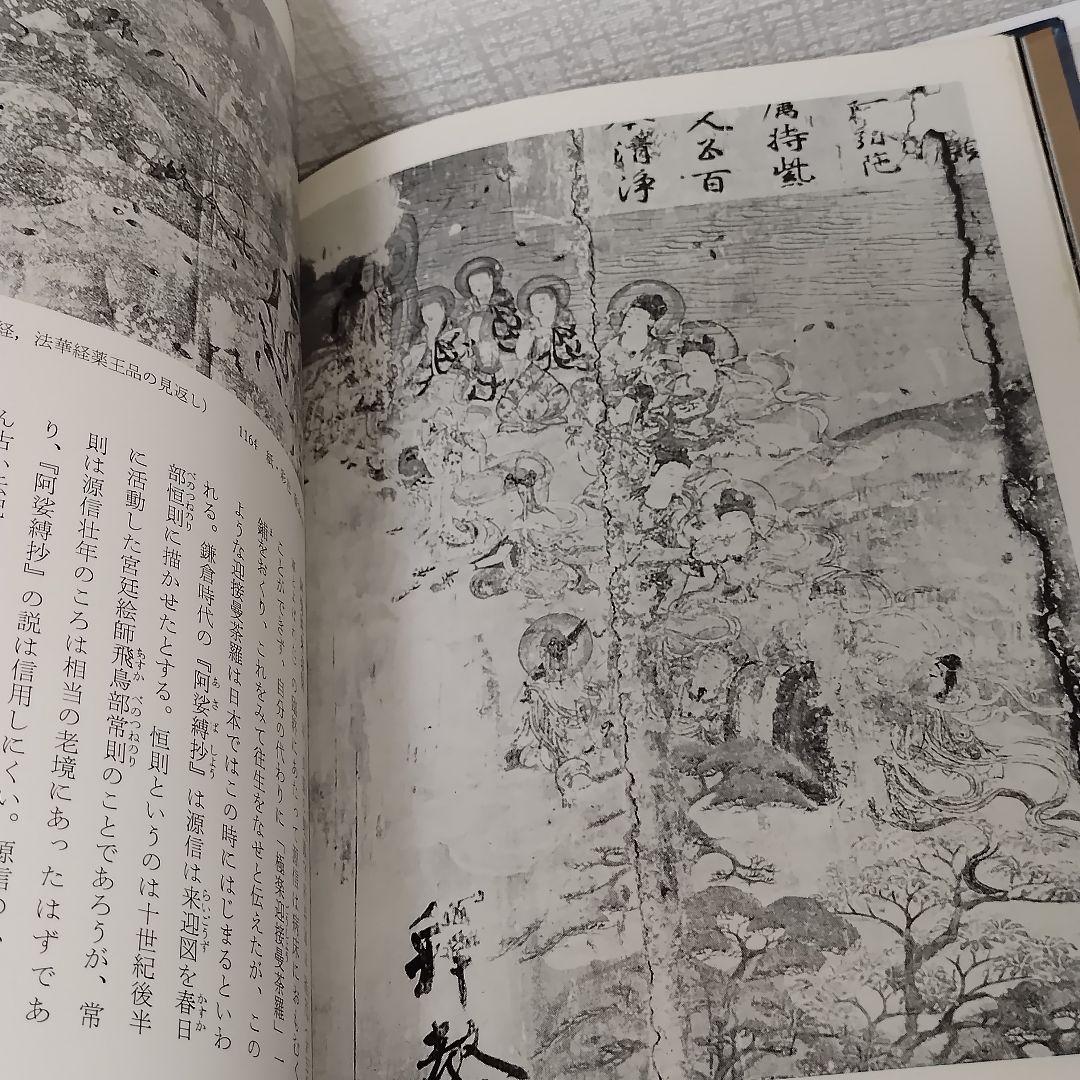 経，法華経薬王品の見返し）
1164
ことができず、自分の代わりに「極楽迎接曼荼羅」一
鋪をおくり、これをみて往生をなせと伝えたが、この
ような迎接曼荼羅は日本ではこの時にはじまるといわ
れる。鎌倉時代の『阿娑縛抄』は源信は来迎図を春日
部恒則に描かせたとする。恒則というのは十世紀後半
に活動した宮廷絵師飛鳥部常則のことであろうが、常
則は源信壮年のころは相当の老境にあったはずであ
り、『阿娑縛抄』の説は信用しにくい。源信の、
願
阿弥陀
持
百
清浄
釋
教